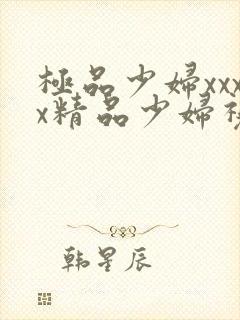 極品少婦xxx
x精品少婦
韩星辰